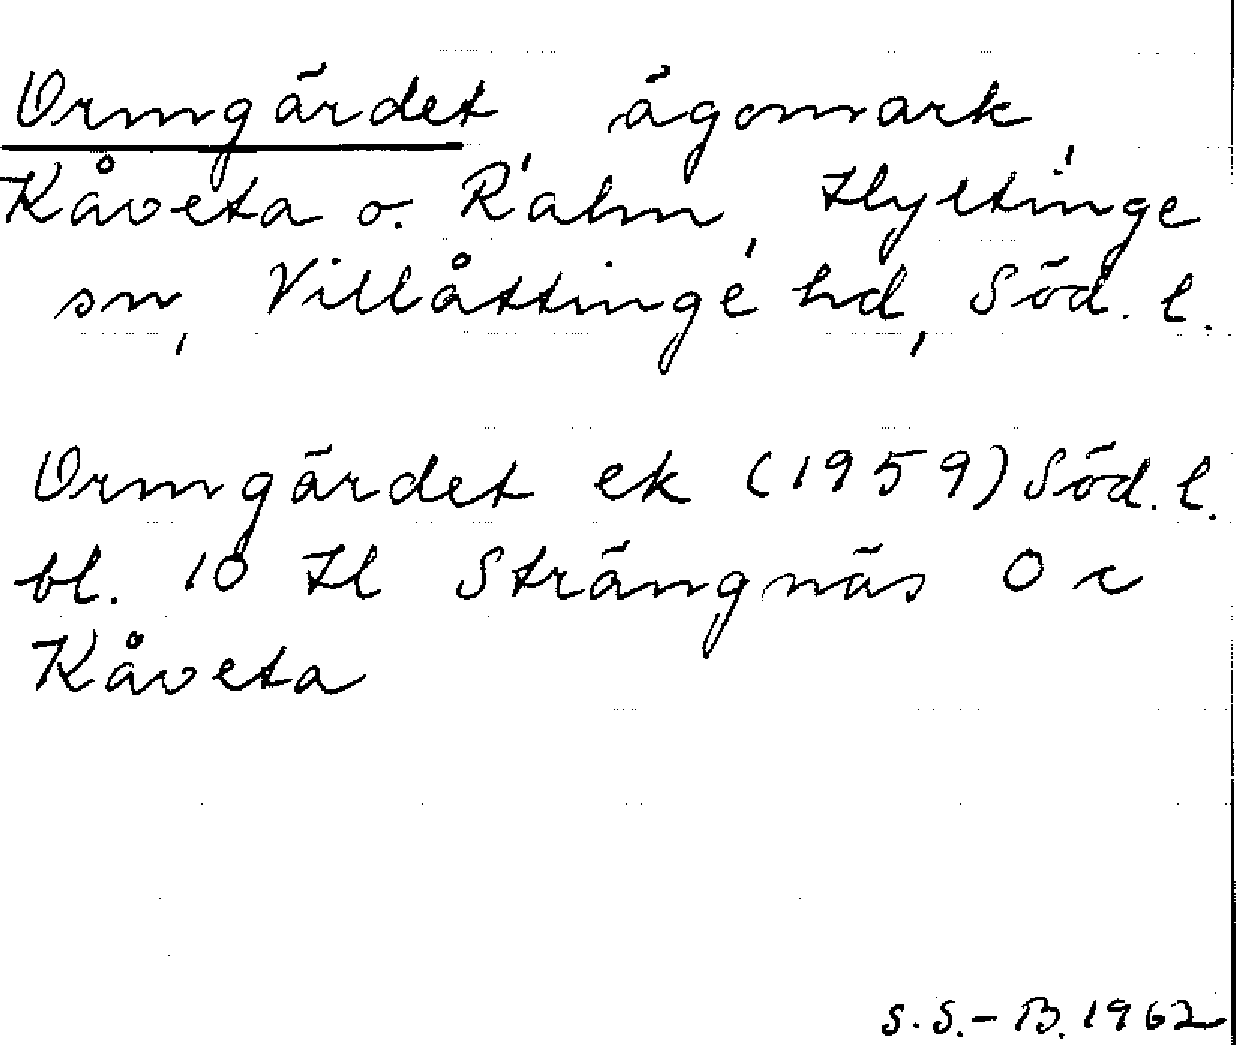 Ormgärdet ägomark,
Kåveta o. Ralm, Hyltinge
sn, Villåttinge hd, Söd. l.
Ormgärdet ek (1959) Söd. l.
bl. 10 H Strängnäs 0 c
Kåveta
S.S.-B. 1962